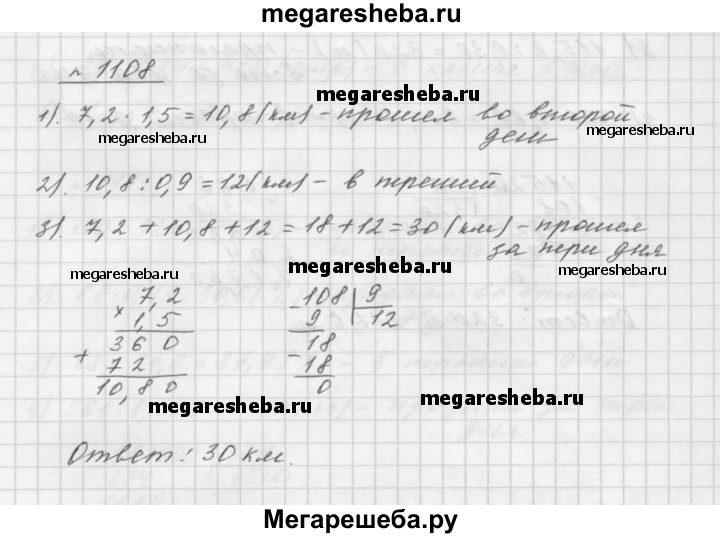 megaresheba.ru
n 1108
megaresheba.ru
1). 7,2 · 1,5 = 10,8 (км) - прошел во второй
megaresheba.ru
megaresheba.ru
ден
2). 10,8 : 0,9 = 12 (км) - в третий
3). 7,2 + 10,8 + 12 = 18 + 12 = 30 (км) - прошел
за три дня
megaresheba.ru
megaresheba.ru
megaresheba.ru
7,2
× 1,5
360
+ 72
10,80
- 108 | 9
9 12
- 18
18
0
megaresheba.ru
megaresheba.ru
megaresheba.ru
Ответ: 30 км.
Мегарешеба.ру